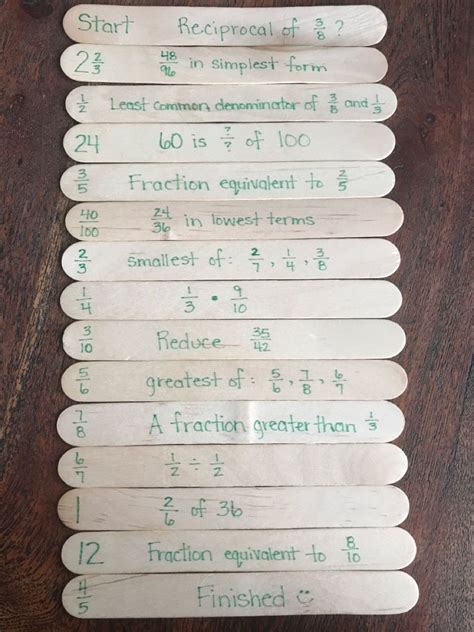 Start Reciprocal of 3/8 ?
2 2/3 48/96 in simplest form
1/2 Least common denominator of 3/8 and 1/3
24 60 is ?/? of 100
3/5 Fraction equivalent to 2/5
40/100 24/36 in lowest terms
2/3 smallest of: 2/7, 1/4, 3/8
1/4 1/3 • 9/10
3/10 Reduce 35/42
5/6 greatest of: 5/6, 7/8, 6/7
7/8 A fraction greater than 1/3
6/7 1/2 ÷ 1/2
1 2/6 of 36
12 Fraction equivalent to 8/10
4/5 Finished ☺